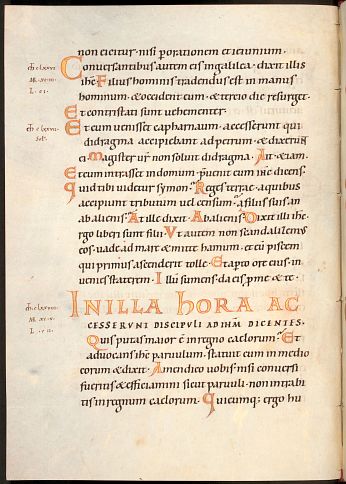 non eicitur · nisi per orationem et ieiunium ·
Conversantibus autem eis in galilea · dixit illis
ihc · Filius hominis tradendus est in manus
hominum · & occident eum · & tercio die resurget ·
Et contristati sunt uehementer ·
Et cum uenissent capharnaum · accesserunt qui
didragma accipiebant ad petrum · & dixerunt
ei · magister ur non soluit didragma · Ait · etiam ·
Et cum intrasset in domum · puenit eum ihc dicens ·
quid tibi uidetur symon · Reges terrae · a quibus
accipiunt tributum uel censum · a filiis suis · an
ab alienis · At ille dixit · Ab alienis · Dixit illi ihc ·
ergo liberi sunt filii · Ut autem non scandalizemus
eos · uade ad mare & mitte hamum · et eū piscem
qui primus ascenderit tolle · Et apto ore eius · in
uenies staterem · Illū sumens · da eis p me & te ·
IN ILLA hORA AC
CESSERUNT DISCIPULI AD IHM DICENTES ·
Quis putas maior ē in regno caelorum · Et
aduocans ihc paruulum · statuit eum in medio
eorum & dixit · Amen dico uobis · nisi conuersi
fueritis & efficiamini sicut paruuli · non intrabi
tis in regnum caelorum · Quicumq; ergo hu